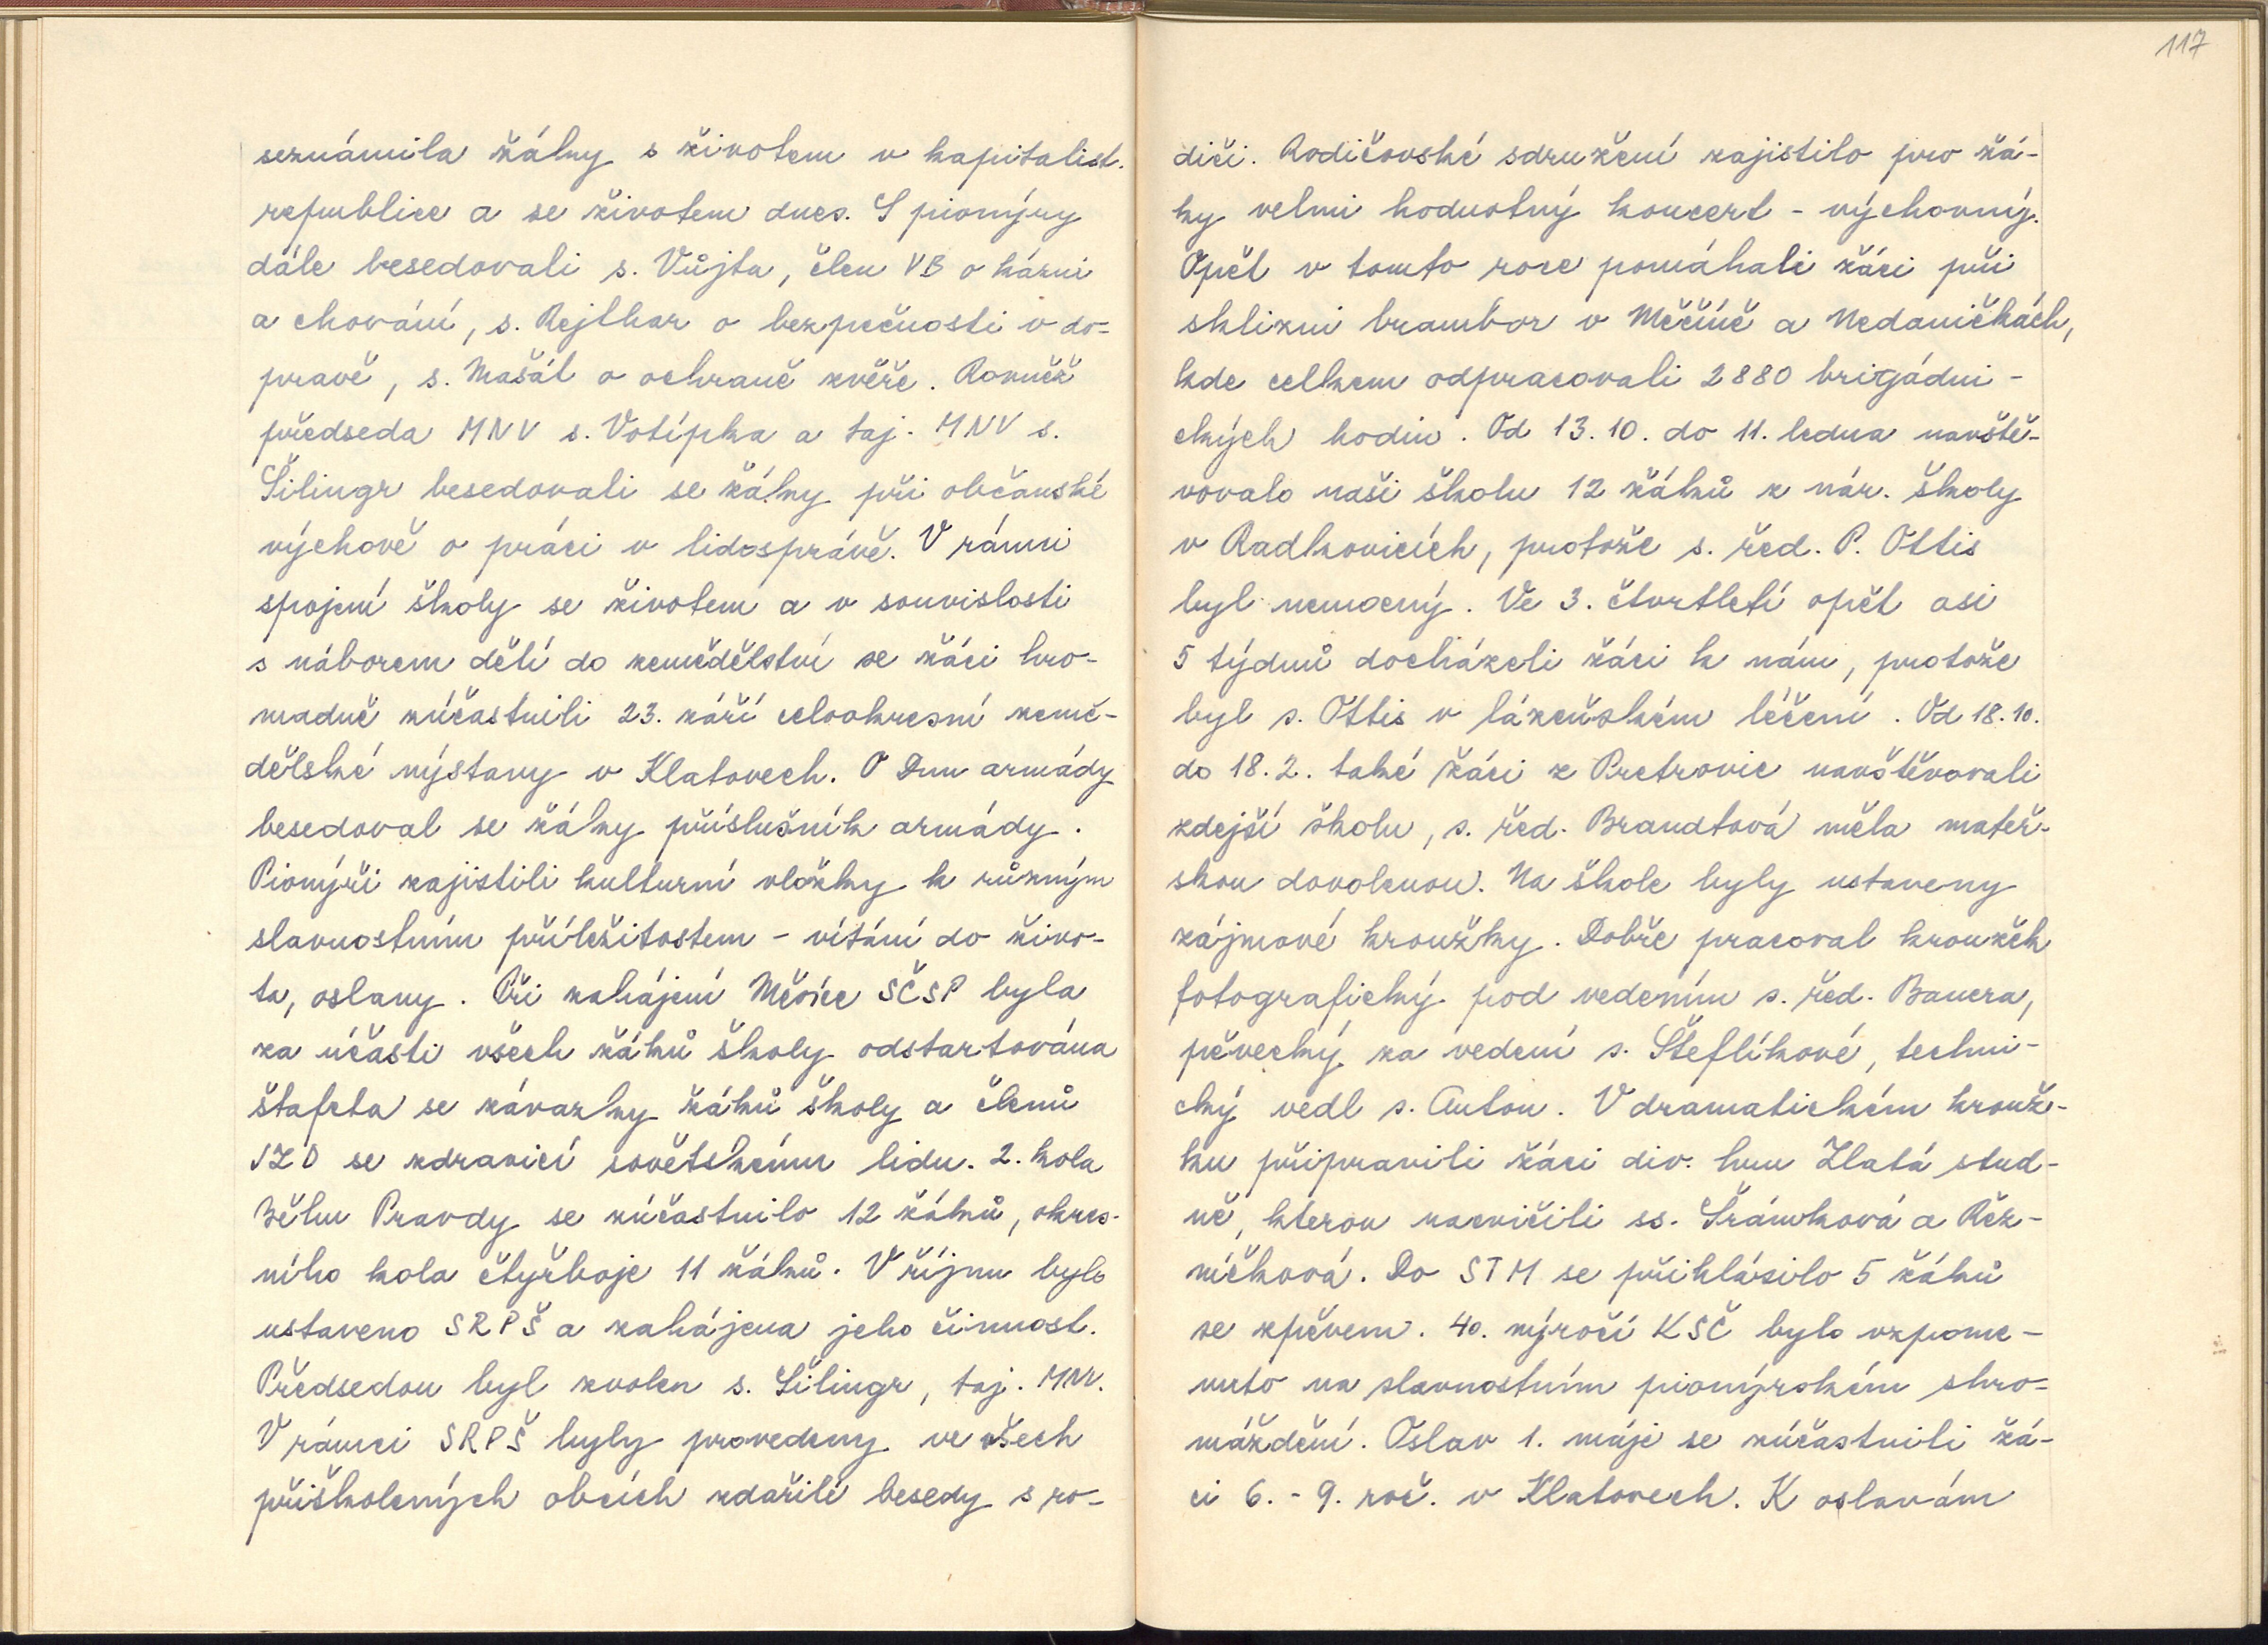 117
seznámila žáky s životem v kapitalist.
republice a se životem dnes. S pionýry
dále besedovali s. Vůjta, člen VB o kázni
a chování, s. Rejlhar o bezpečnosti v do-
pravě, s. Mašát o ochraně zvěře. Rovněž
předseda MNV s. Votípka a taj. MNV s.
Šilingr besedovali se žáky při občanské
výchově o práci v lidosprávě. V rámci
spojení školy se životem a v souvislosti
s náborem dětí do zemědělství se žáci hro-
madně zúčastnili 23. září celookresní země-
dělské výstavy v Klatovech. O Dnu armády
besedoval se žáky příslušník armády.
Pionýři zajistili kulturní vložky k různým
slavnostním příležitostem - vítání do živo-
ta, oslavy. Při zahájení Měsíce SČSP byla
za účasti všech žáků školy odstartována
štafeta se závazky žáků školy a členů
JZD se zdravicí sovětskému lidu. 2. kola
Běhu Pravdy se zúčastnilo 12 žáků, okres-
ního kola čtyřboje 11 žáků. V říjnu bylo
ustaveno SRPŠ a zahájena jeho činnost.
Předsedou byl zvolen s. Šilingr, taj. MNV.
V rámci SRPŠ byly provedeny ve všech
přiškolených obcích zdařilé besedy s ro-
diči. Rodičovské sdružení zajistilo pro žá-
ky velmi hodnotný koncert - výchovný.
Opět v tomto roce pomáhali žáci při
sklizni brambor v Měčíně a Nedaničkách,
kde celkem odpracovali 2880 brigádni-
ckých hodin. Od 13.10. do 11. ledna navště-
vovalo naši školu 12 žáků z nár. školy
v Radkovicích, protože s. řed. P. Ottis
byl nemocný. Ve 3. čtvrtletí opět asi
5 týdnů docházeli žáci k nám, protože
byl s. Ottis v lázeňském léčení. Od 18.10.
do 18.2. také žáci z Pretrovic navštěvovali
zdejší školu, s. řed. Brandtová měla mateř-
skou dovolenou. Na škole byly ustaveny
zájmové kroužky. Dobře pracoval kroužek
fotografický pod vedením s. řed. Bauera,
pěvecký za vedení s. Šteflíkové, techni-
cký vedl s. Anton. V dramatickém krouž-
ku připravili žáci div. hru Zlatá stud-
ně, kterou nacvičili ss. Šrámková a Řez-
níčková. Do STM se přihlásilo 5 žáků
se zpěvem. 40. výročí KSČ bylo vzpome-
nuto na slavnostním pionýrském shro-
máždění. Oslav 1. máje se zúčastnili žá-
ci 6. - 9. roč. v Klatovech. K oslavám